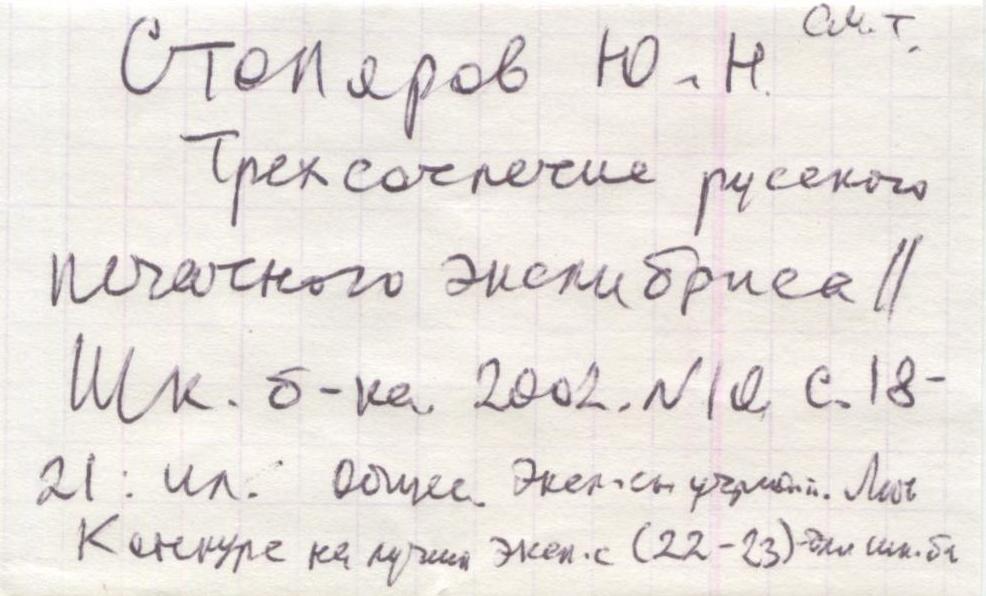 см. т.
Столяров Ю. Н.
Трехсотлетие русского
печатного экслибриса //
Шк. б-ка. 2002. N 10. С. 18-
21: ил. Общее. Эксл-сы
Конкурс на лучший эксл-с (22-23) - для шк. б-к